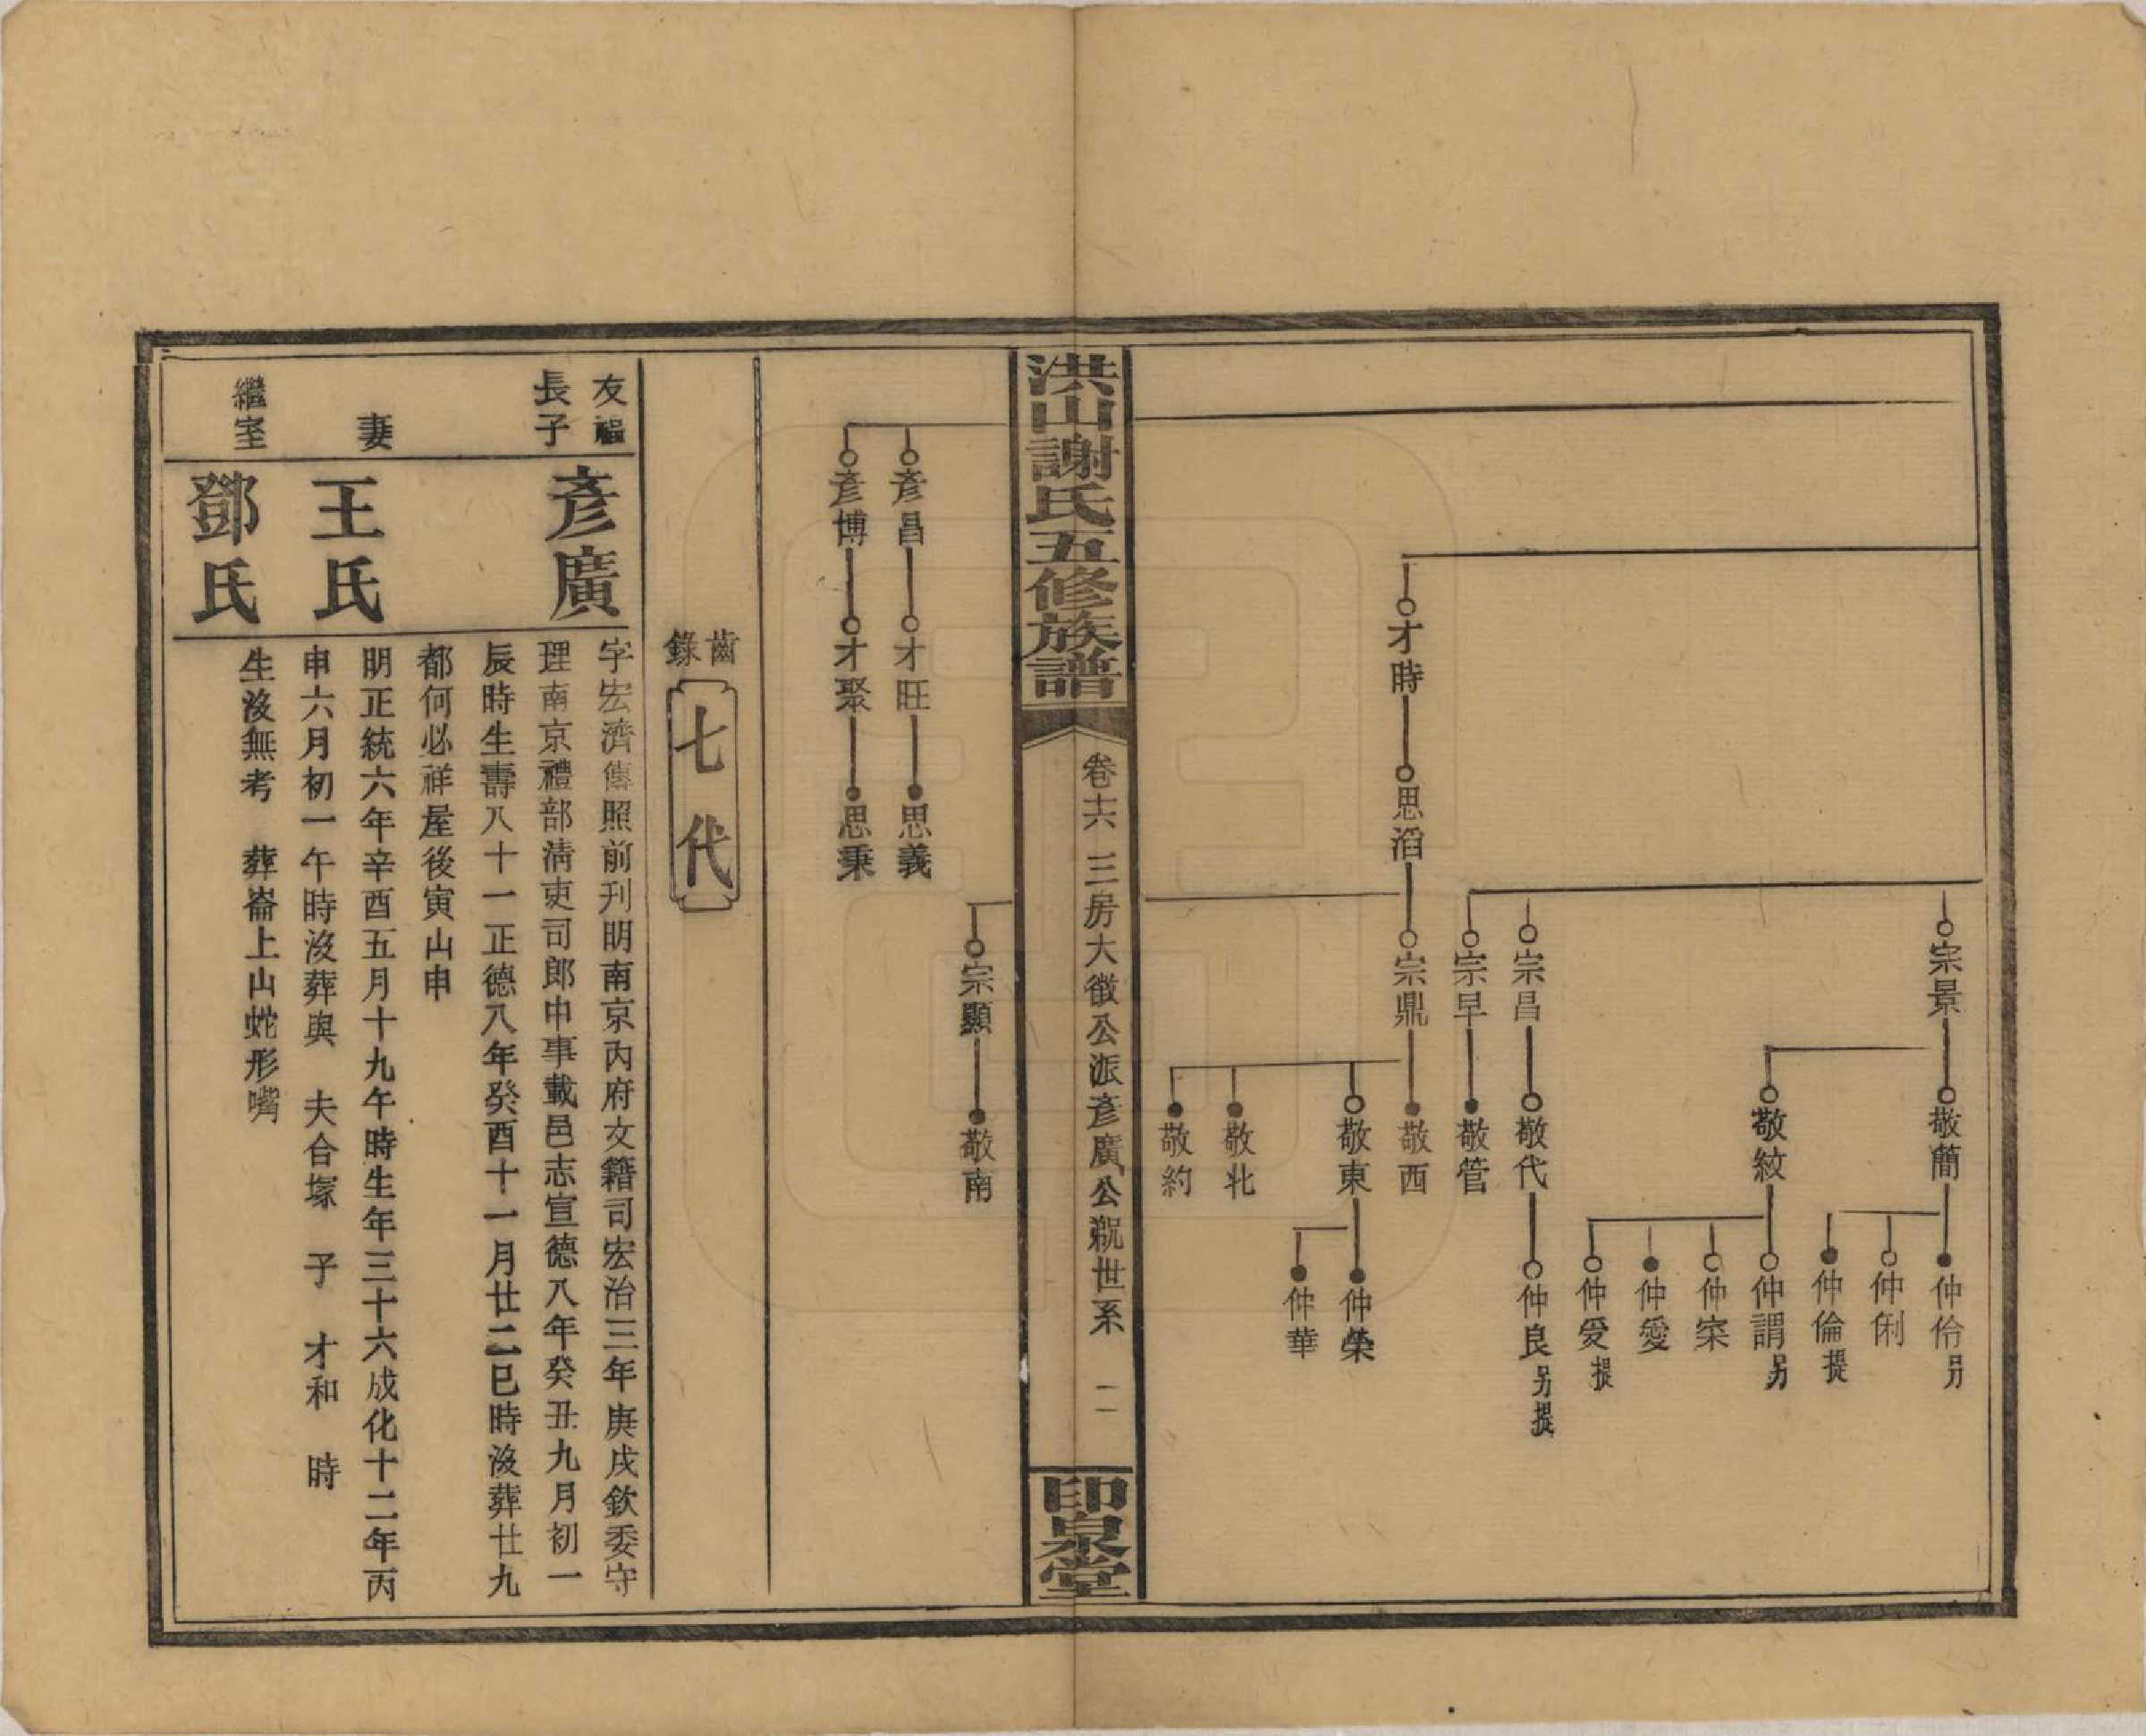 宗景
敬簡
仲伶 另
仲俐
仲倫 提
敬紋
仲謂 另
仲寀
仲愛
仲爱 提
宗昌
敬代
仲良 另提
宗早
敬管
才時
思滔
宗鼎
敬西
敬東
仲榮
仲華
敬北
敬約
洪山謝氏五修族譜
卷十六 三房大徵公派彥廣公㲋世系 二
印泉堂
宗顯
敬南
彥昌
才旺
思義
彥博
才聚
思秉
齒錄
七代
友福
長子
彥廣
字宏濟傳照前刋明南京內府文籍司宏治三年庚戌欽委守
理南京禮部清吏司郎中事載邑志宣德八年癸丑九月初一
辰時生壽八十一正德八年癸酉十一月廿二巳時沒葬廿九
都何必祥屋後寅山申
妻
王氏
明正統六年辛酉五月十九午時生年三十六成化十二年丙
申六月初一午時沒葬與 夫合塚 子 才和 時
繼室
鄧氏
生沒無考 葬崙上山蛇形嘴